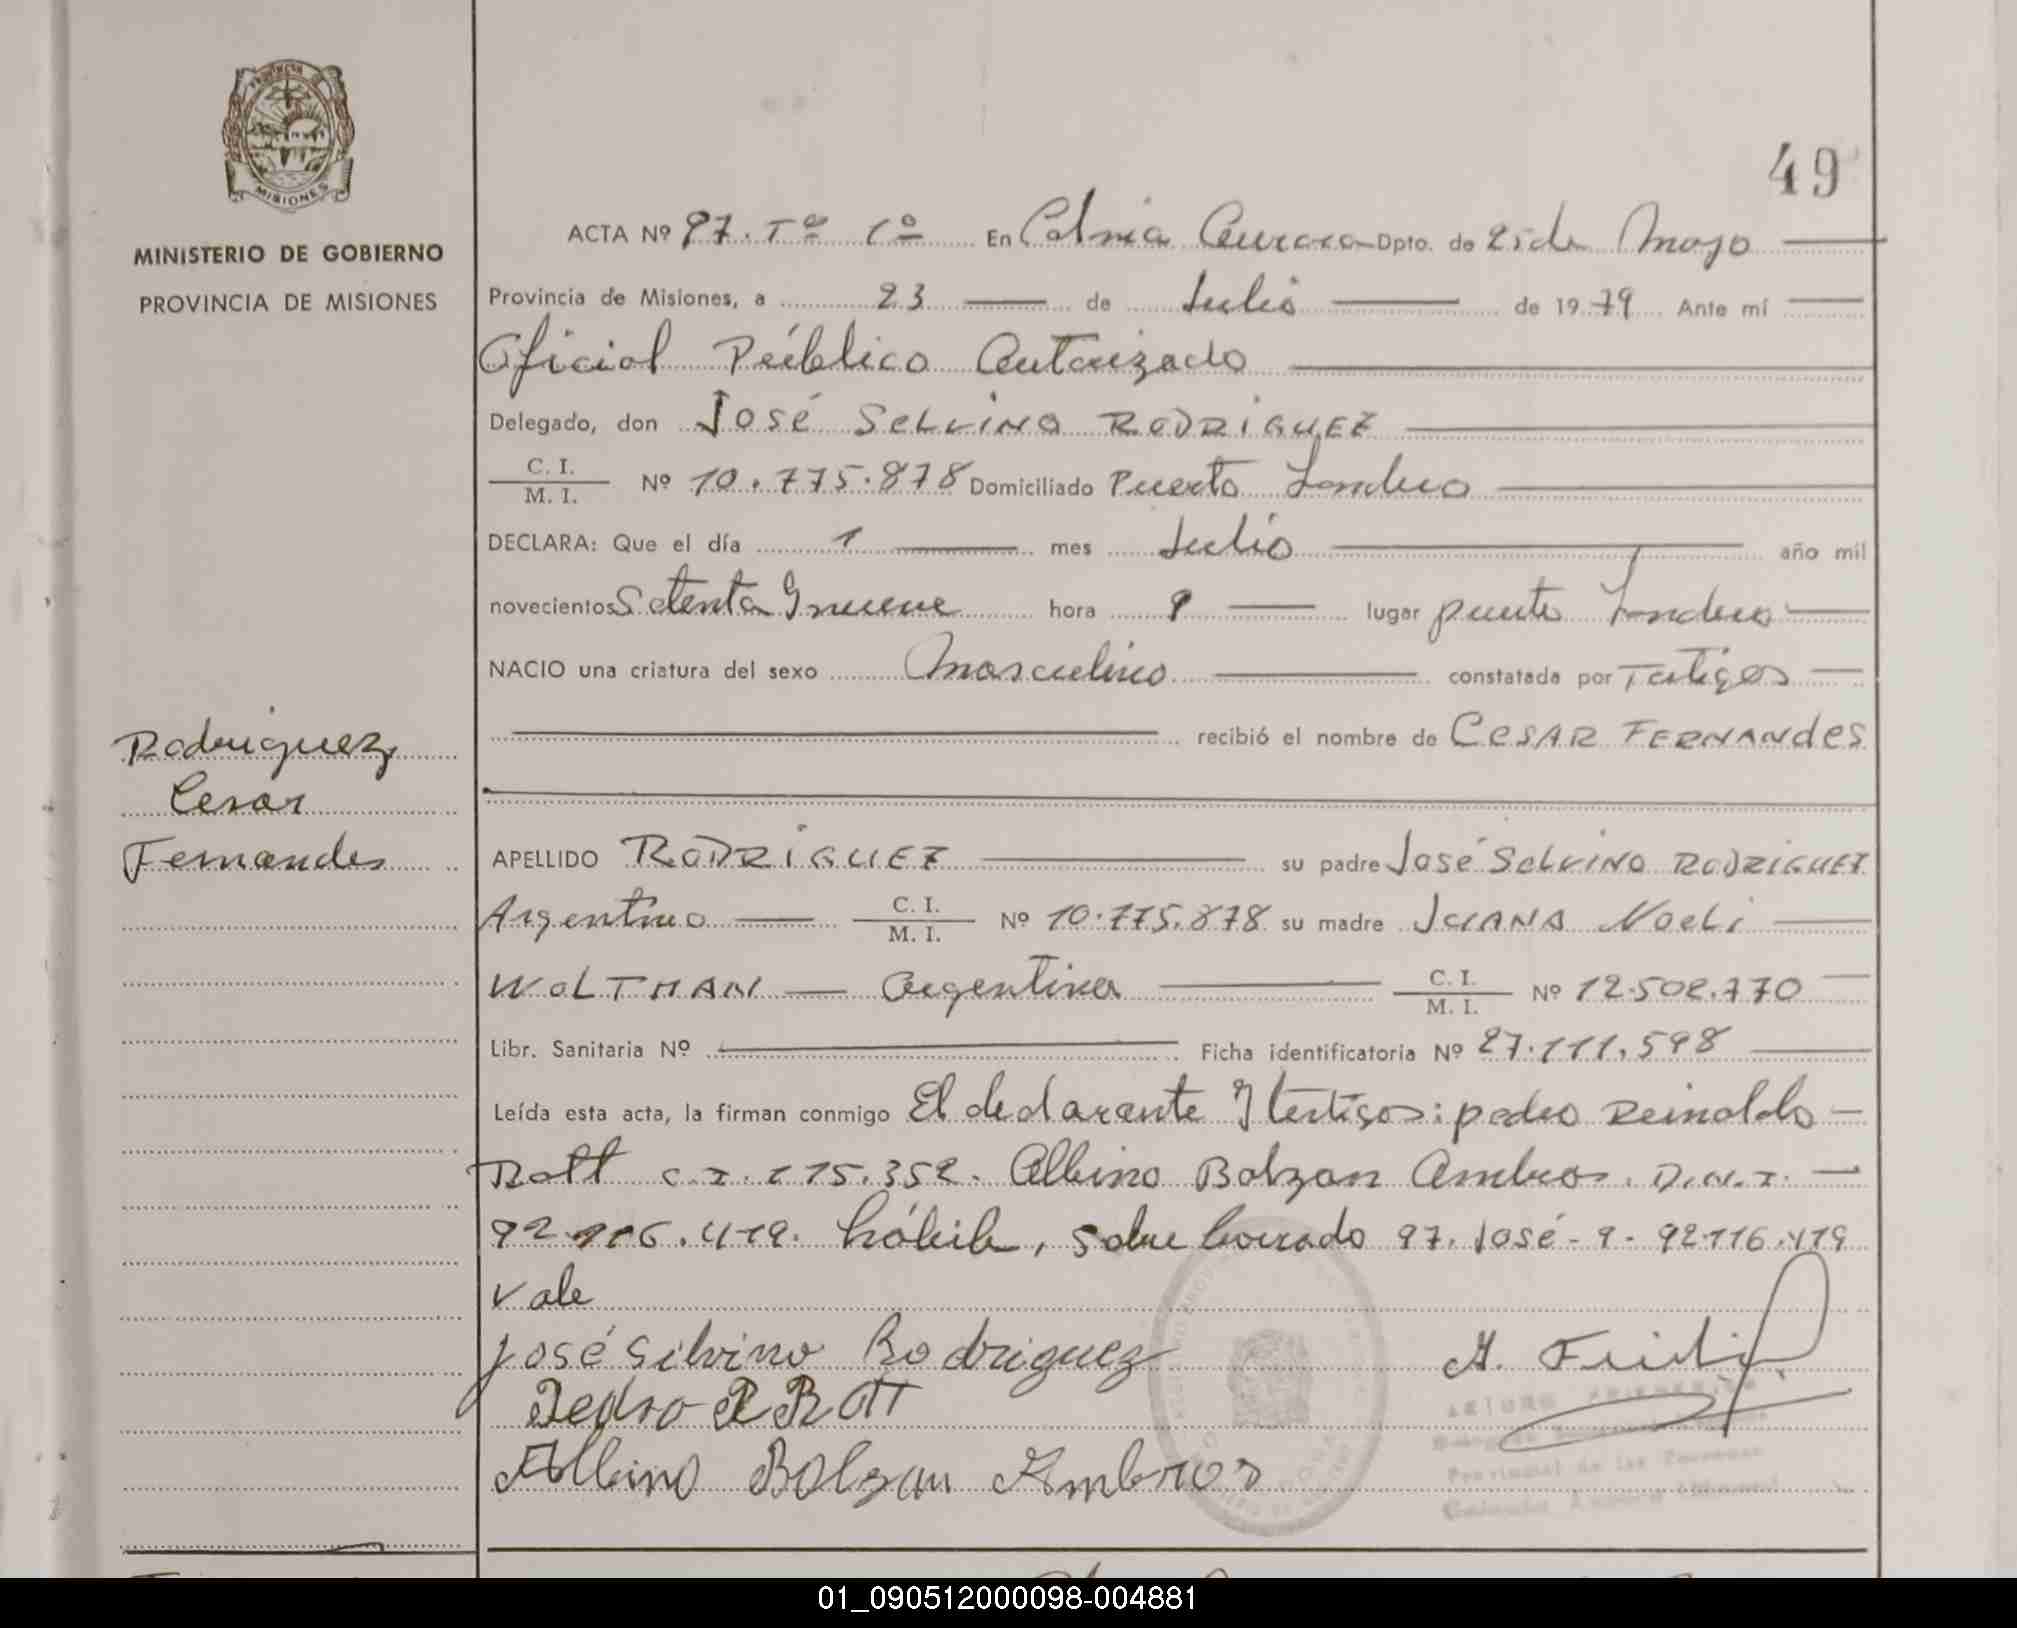 PROVINCIA
MISIONES
49
MINISTERIO DE GOBIERNO
PROVINCIA DE MISIONES
ACTA Nº 97. Tº 1º En Colonia Aurora Dpto. de 25 de Mayo
Provincia de Misiones, a 23 de Julio de 1979 Ante mí
Oficial Público Autorizado
Delegado, don José SELVINO RODRIGUEZ
C. I.
M. I. Nº 10.775.878 Domiciliado Puerto Londero
DECLARA: Que el día 1 mes Julio año mil
novecientos Setenta y nueve hora 9 lugar puerto Londero
NACIO una criatura del sexo Masculino constatada por Testigos
recibió el nombre de CESAR FERNANdES
Rodriguez
Cesar
Fernandes
APELLIDO RODRIGUEZ su padre José SELVINO RODRIGUEZ
Argentino C. I.
M. I. Nº 10.775.878 su madre JUANA NoeLi
WOLTMAN argentina C. I.
M. I. Nº 12.502.770
Libr. Sanitaria Nº Ficha identificatoria Nº 27.111.598
Leída esta acta, la firman conmigo El declarante y testigos: pedro Reinoldo
Rott C.I. 175.352. Albino Bolzan Ambros. D.N.I.
92.116.419. hábile, sobre borrado 97. José - 9 - 92.116.419
vale
José Silvino Rodriguez
Pedro R Rott
Albino Bolzan Ambros
01_090512000098-004881